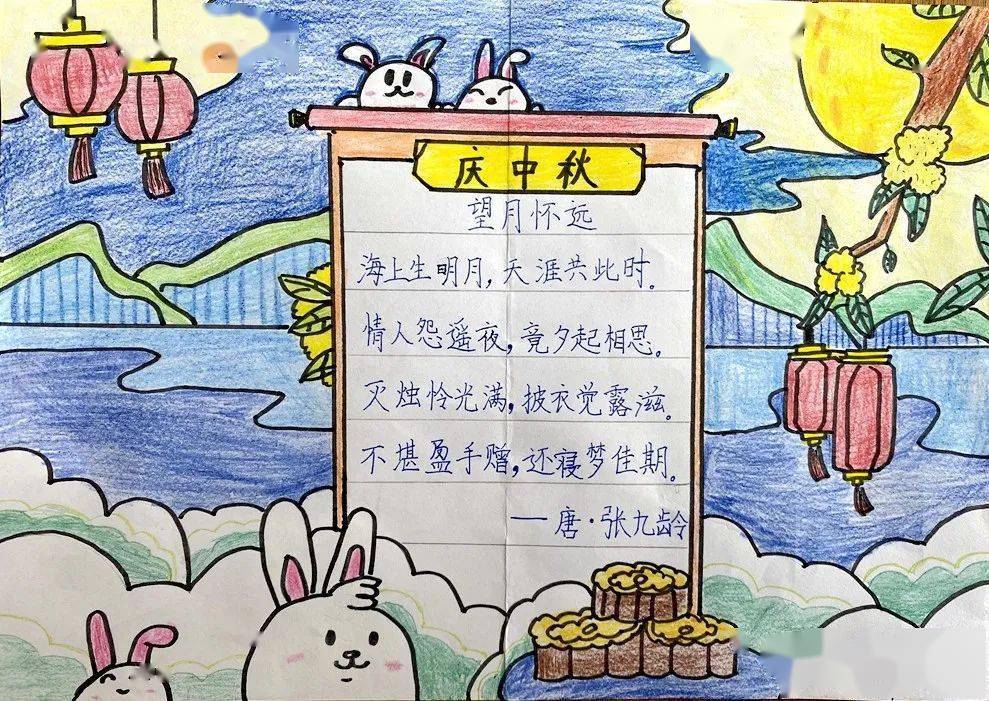 庆中秋
望月怀远
海上生明月,天涯共此时。
情人怨遥夜,竟夕起相思。
灭烛怜光满,披衣觉露滋。
不堪盈手赠,还寝梦佳期。
——唐·张九龄